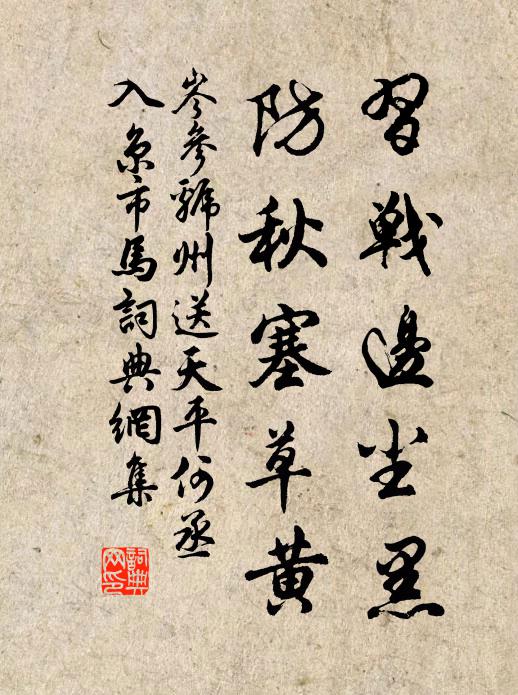 習戰邊塵黑
防秋塞草黃
岑參虢州送天平何丞
入京市馬詞典網集
詞典網印